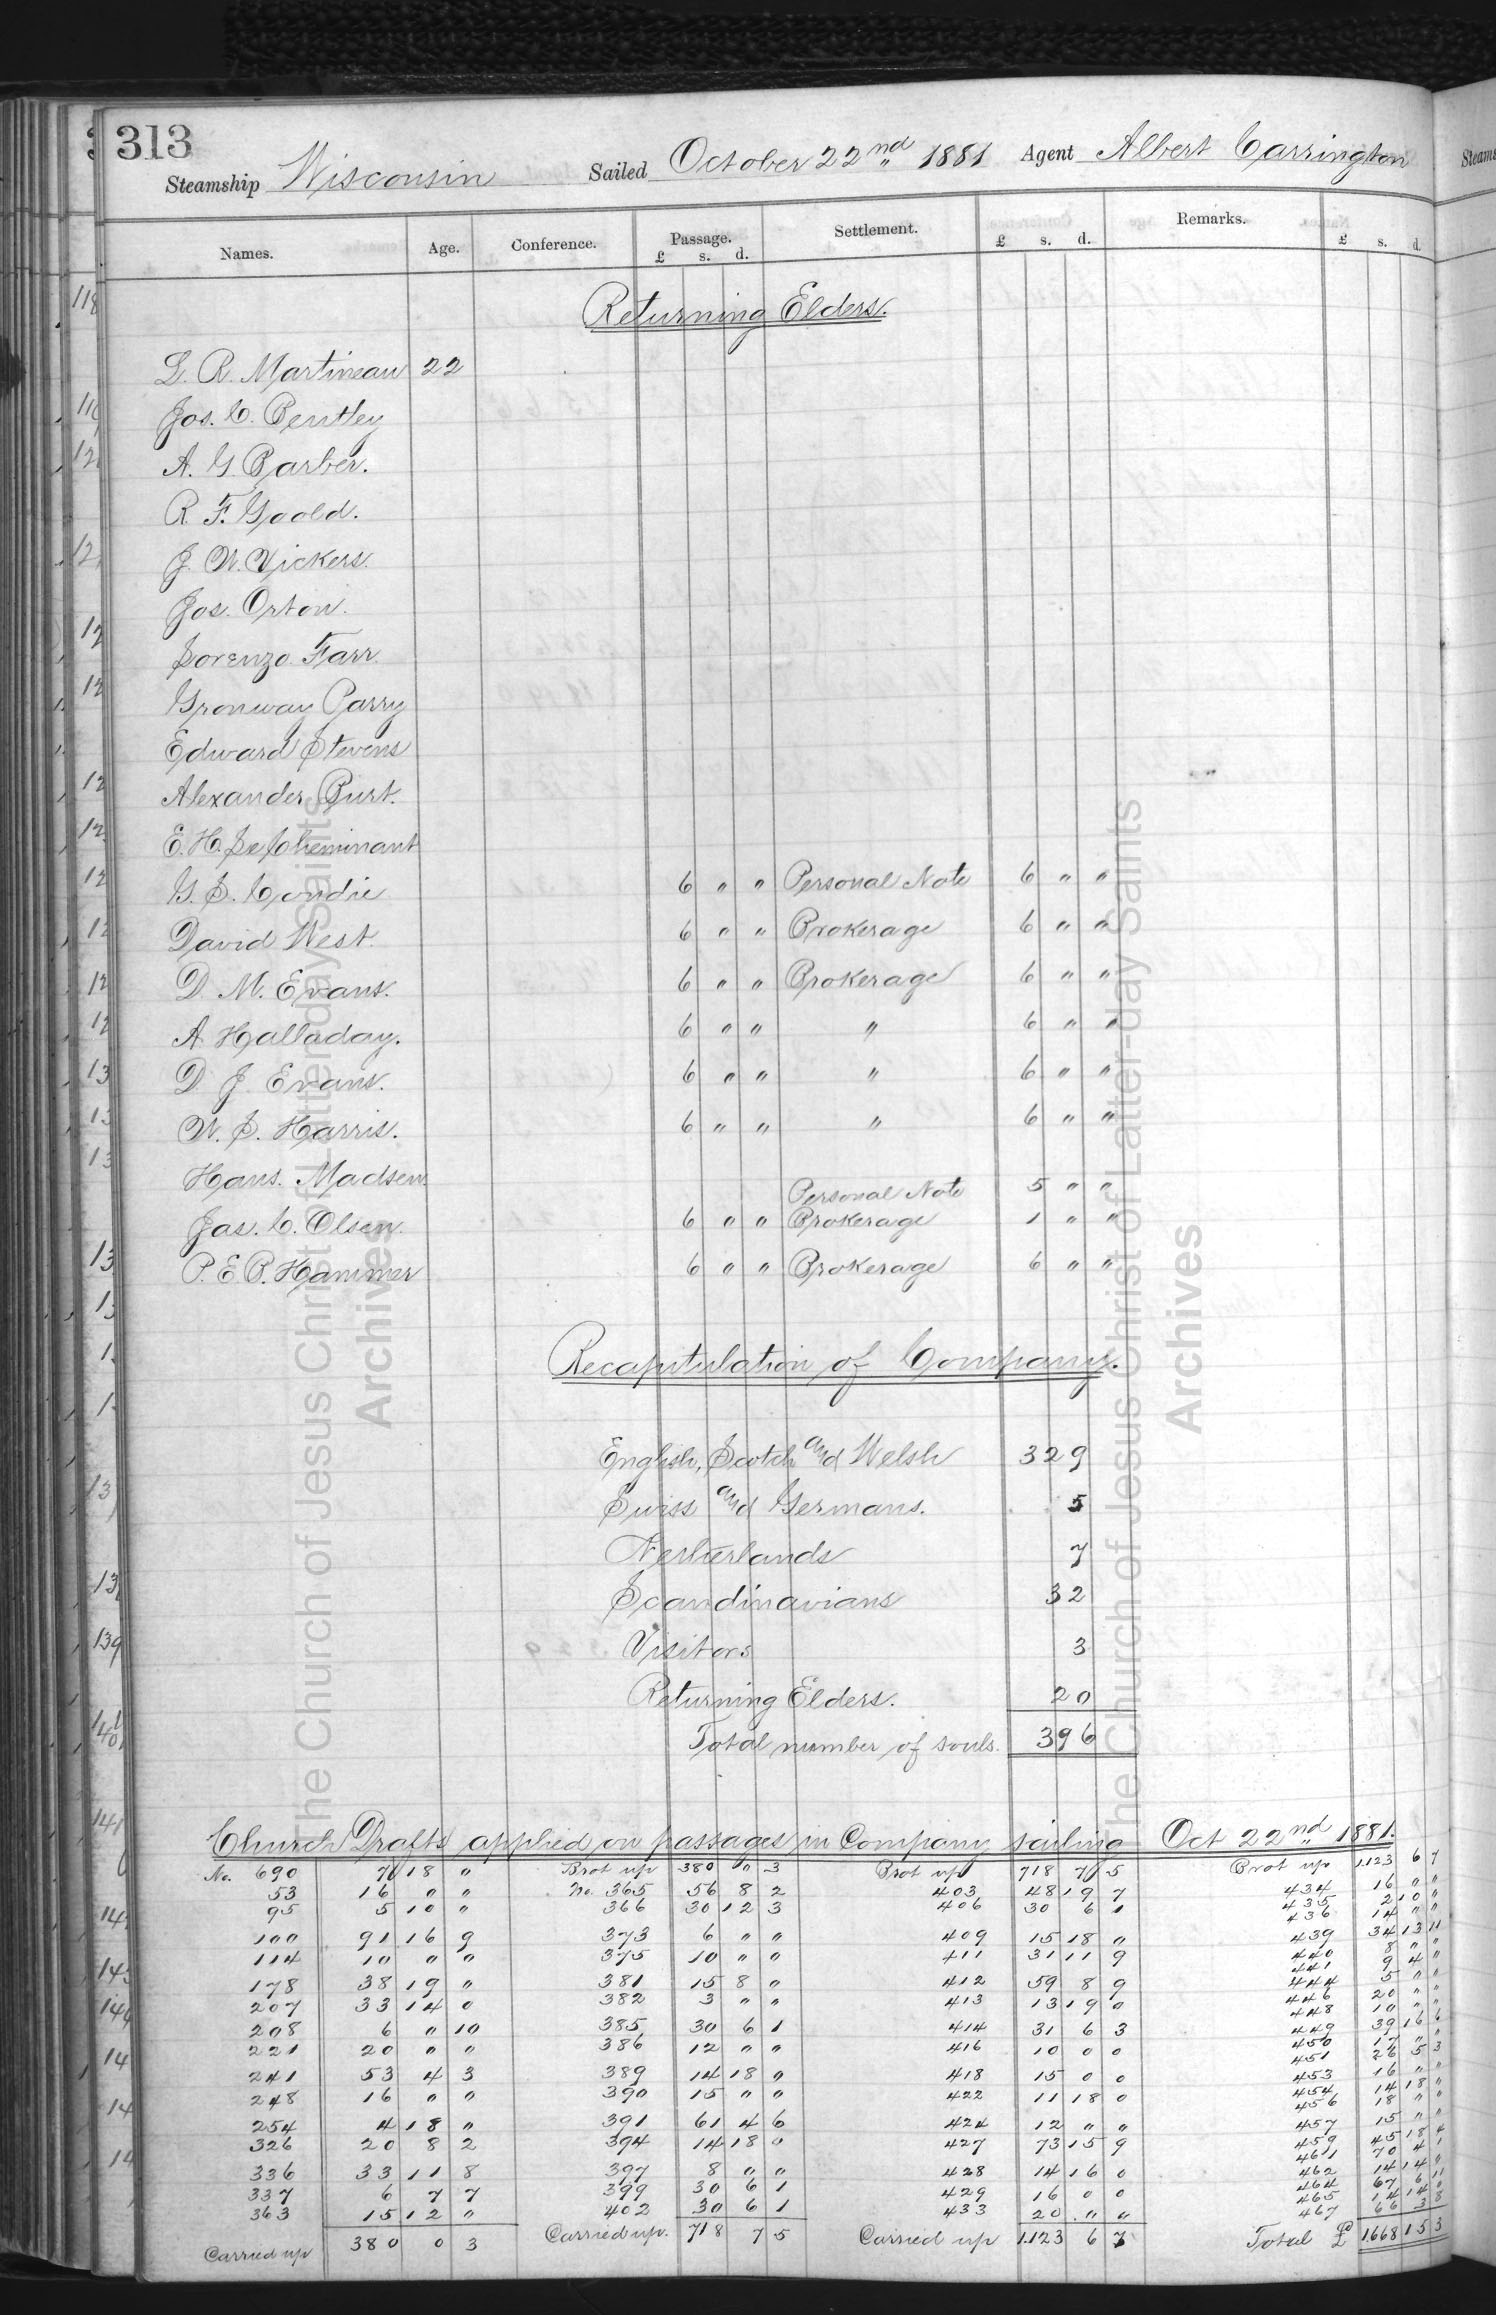 313
Steamship Wisconsin Sailed October 22nd 1881 Agent Albert Carrington
Names. Age. Conference. Passage. Settlement. Remarks.
£ s. d. £ s. d. £ s. d.
Returning Elders.
L. R. Martineau 22
Jos. C. Bentley
A. G. Barber.
R. F. Goold.
J. W. Vickers.
Jos. Orton.
Lorenzo Farr
Gronway Parry
Edward Stevens
Alexander Burt.
E. H. Le Cheminant
G. S. Condie 6 " " Personal Note 6 " "
David West. 6 " " Brokerage 6 " "
D. M. Evans. 6 " " Brokerage 6 " "
A. Halladay. 6 " " " 6 " "
D. J. Evans. 6 " " " 6 " "
W. S. Harris. 6 " " " 6 " "
Hans. Madsen.
Personal Note 5 " "
Jas. C. Olsen. 6 " " Brokerage 1 " "
P. E. B. Hammer 6 " " Brokerage 6 " "
Recapitulation of Company.
English, Scotch and Welsh 329
Swiss and Germans. 5
Netherlands 7
Scandinavians 32
Visitors 3
Returning Elders. 20
Total number of souls. 396
Church Drafts applied on passages in Company sailing Oct 22nd 1881.
No. 690 7 18 " Brot up 380 " 3 Brot up 718 7 5 Brot up 1123 6 7
53 16 " " No. 365 56 8 2 403 48 19 7 434 16 " "
95 5 10 " 366 30 12 3 406 30 6 1 435 2 10 "
436 14 " "
100 91 16 9 373 6 " " 409 15 18 " 439 34 13 11
114 10 " " 375 10 " " 411 31 11 9 440 8 " "
441 9 4 "
178 38 19 " 381 15 8 " 412 59 8 9 444 5 " "
207 33 14 0 382 3 " " 413 13 19 0 446 20 " "
448 10 " "
208 6 " 10 385 30 6 1 414 31 6 3 449 39 16 6
221 20 " " 386 12 " " 416 10 0 0 450 17 " "
451 26 5 3
241 53 4 3 389 14 18 " 418 15 0 0 453 16 " "
248 16 " " 390 15 " " 422 11 18 0 454 14 18 "
456 18 " "
254 4 18 " 391 61 4 6 424 12 " " 457 15 " "
326 20 8 2 394 14 18 0 427 73 15 9 459 45 18 4
461 70 4 1
336 33 11 8 397 8 " " 428 14 16 0 462 14 14 "
337 6 7 7 399 30 6 1 429 16 0 0 464 67 6 11
465 14 14 "
363 15 12 " 402 30 6 1 433 20 " " 467 66 3 8
Carried up 380 0 3 Carried up. 718 7 5 Carried up 1123 6 7 Total £ 1668 15 3
The Church of Jesus Christ of Latter-day Saints
Archives
The Church of Jesus Christ of Latter-day Saints
Archives